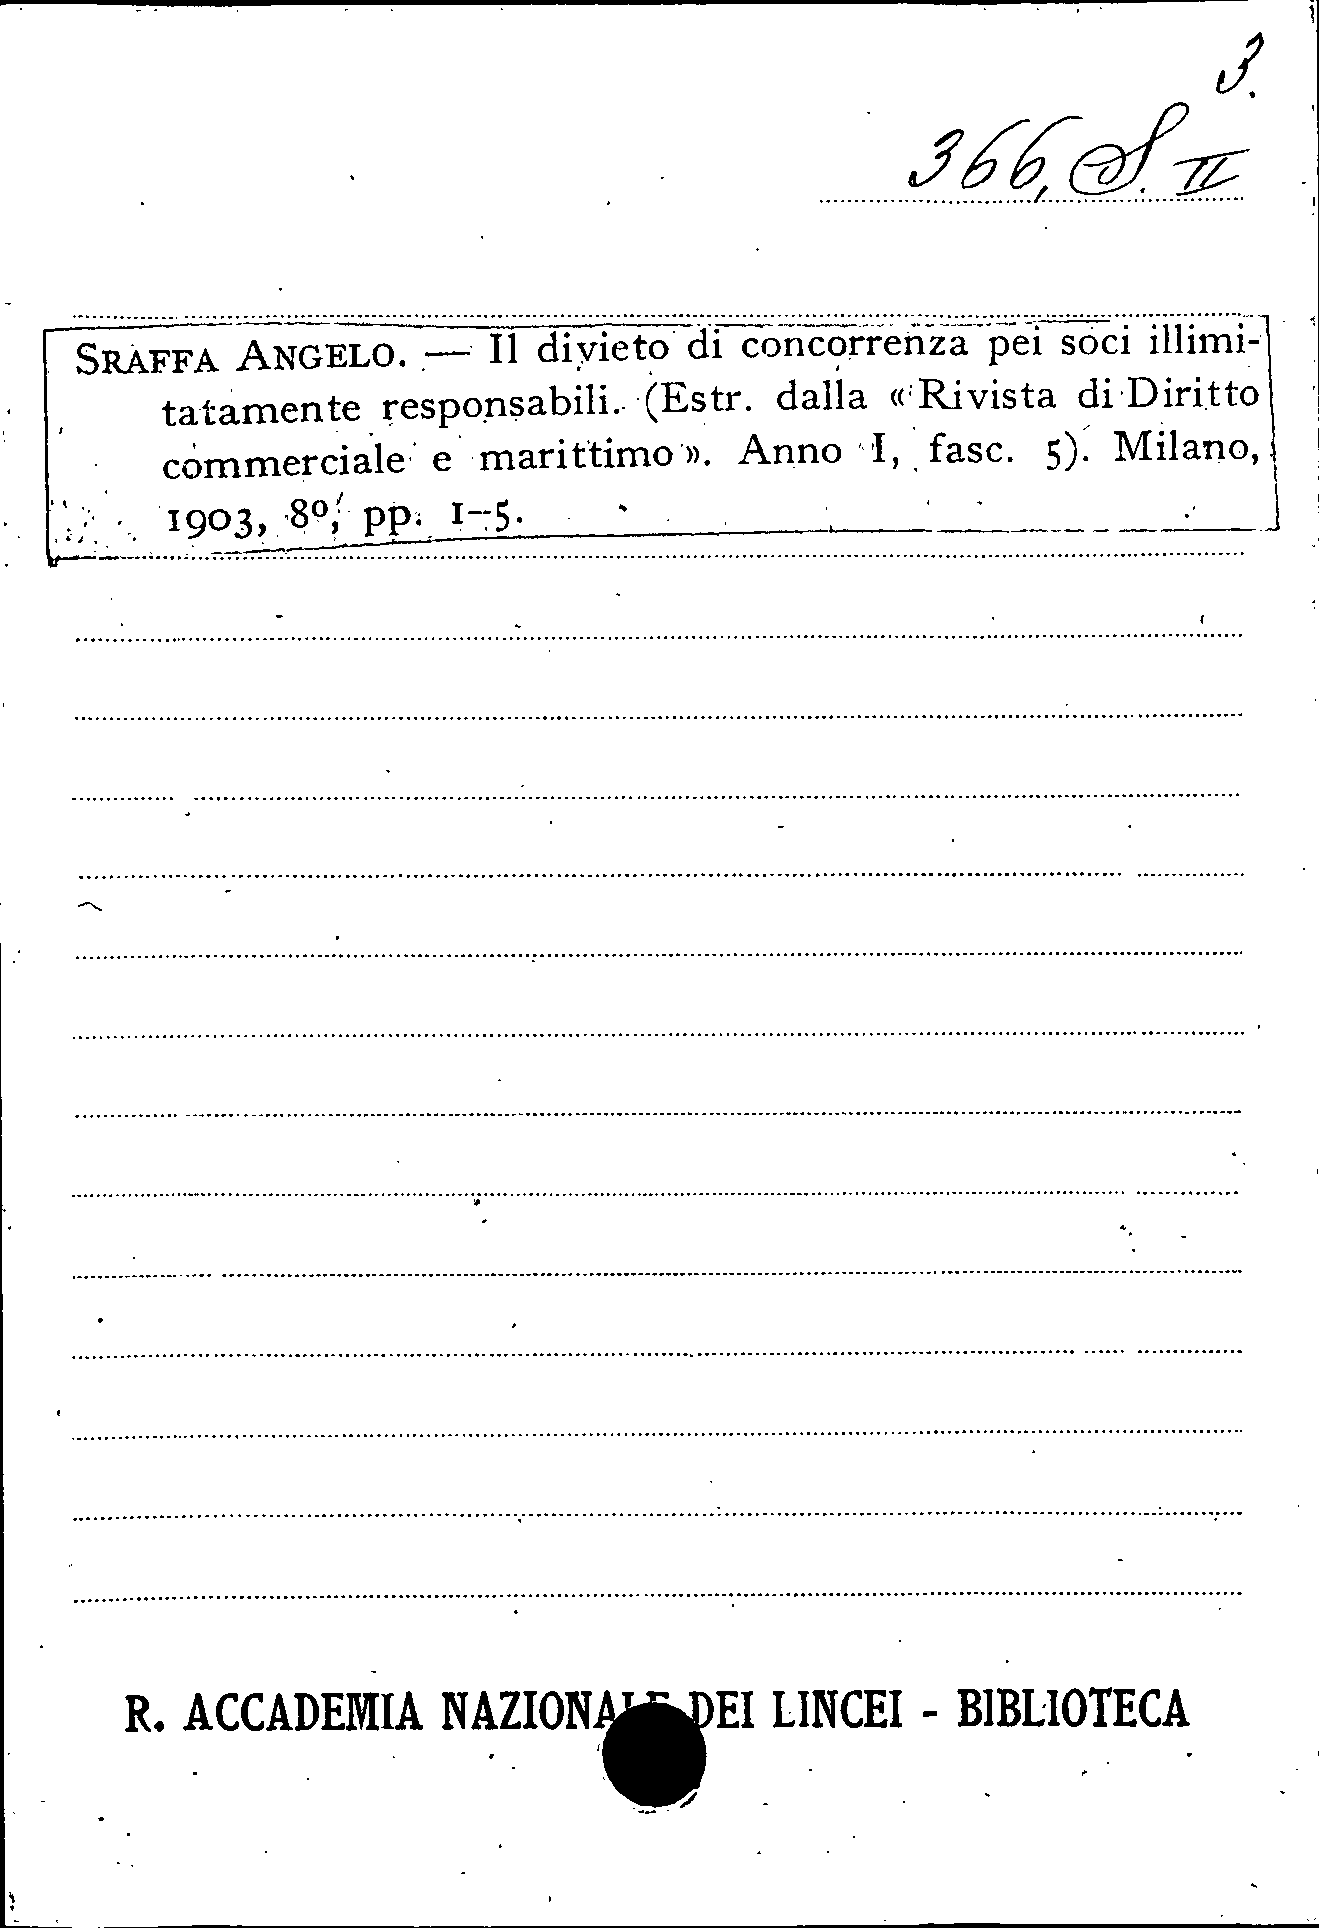 3.
366, S. II
SRAFFA ANGELO. — Il divieto di concorrenza pei soci illimi-
tatamente responsabili. (Estr. dalla « Rivista di Diritto
commerciale e marittimo ». Anno I, fasc. 5). Milano,
1903, 8º, pp. 1-5.
R. ACCADEMIA NAZIONALE DEI LINCEI - BIBLIOTECA